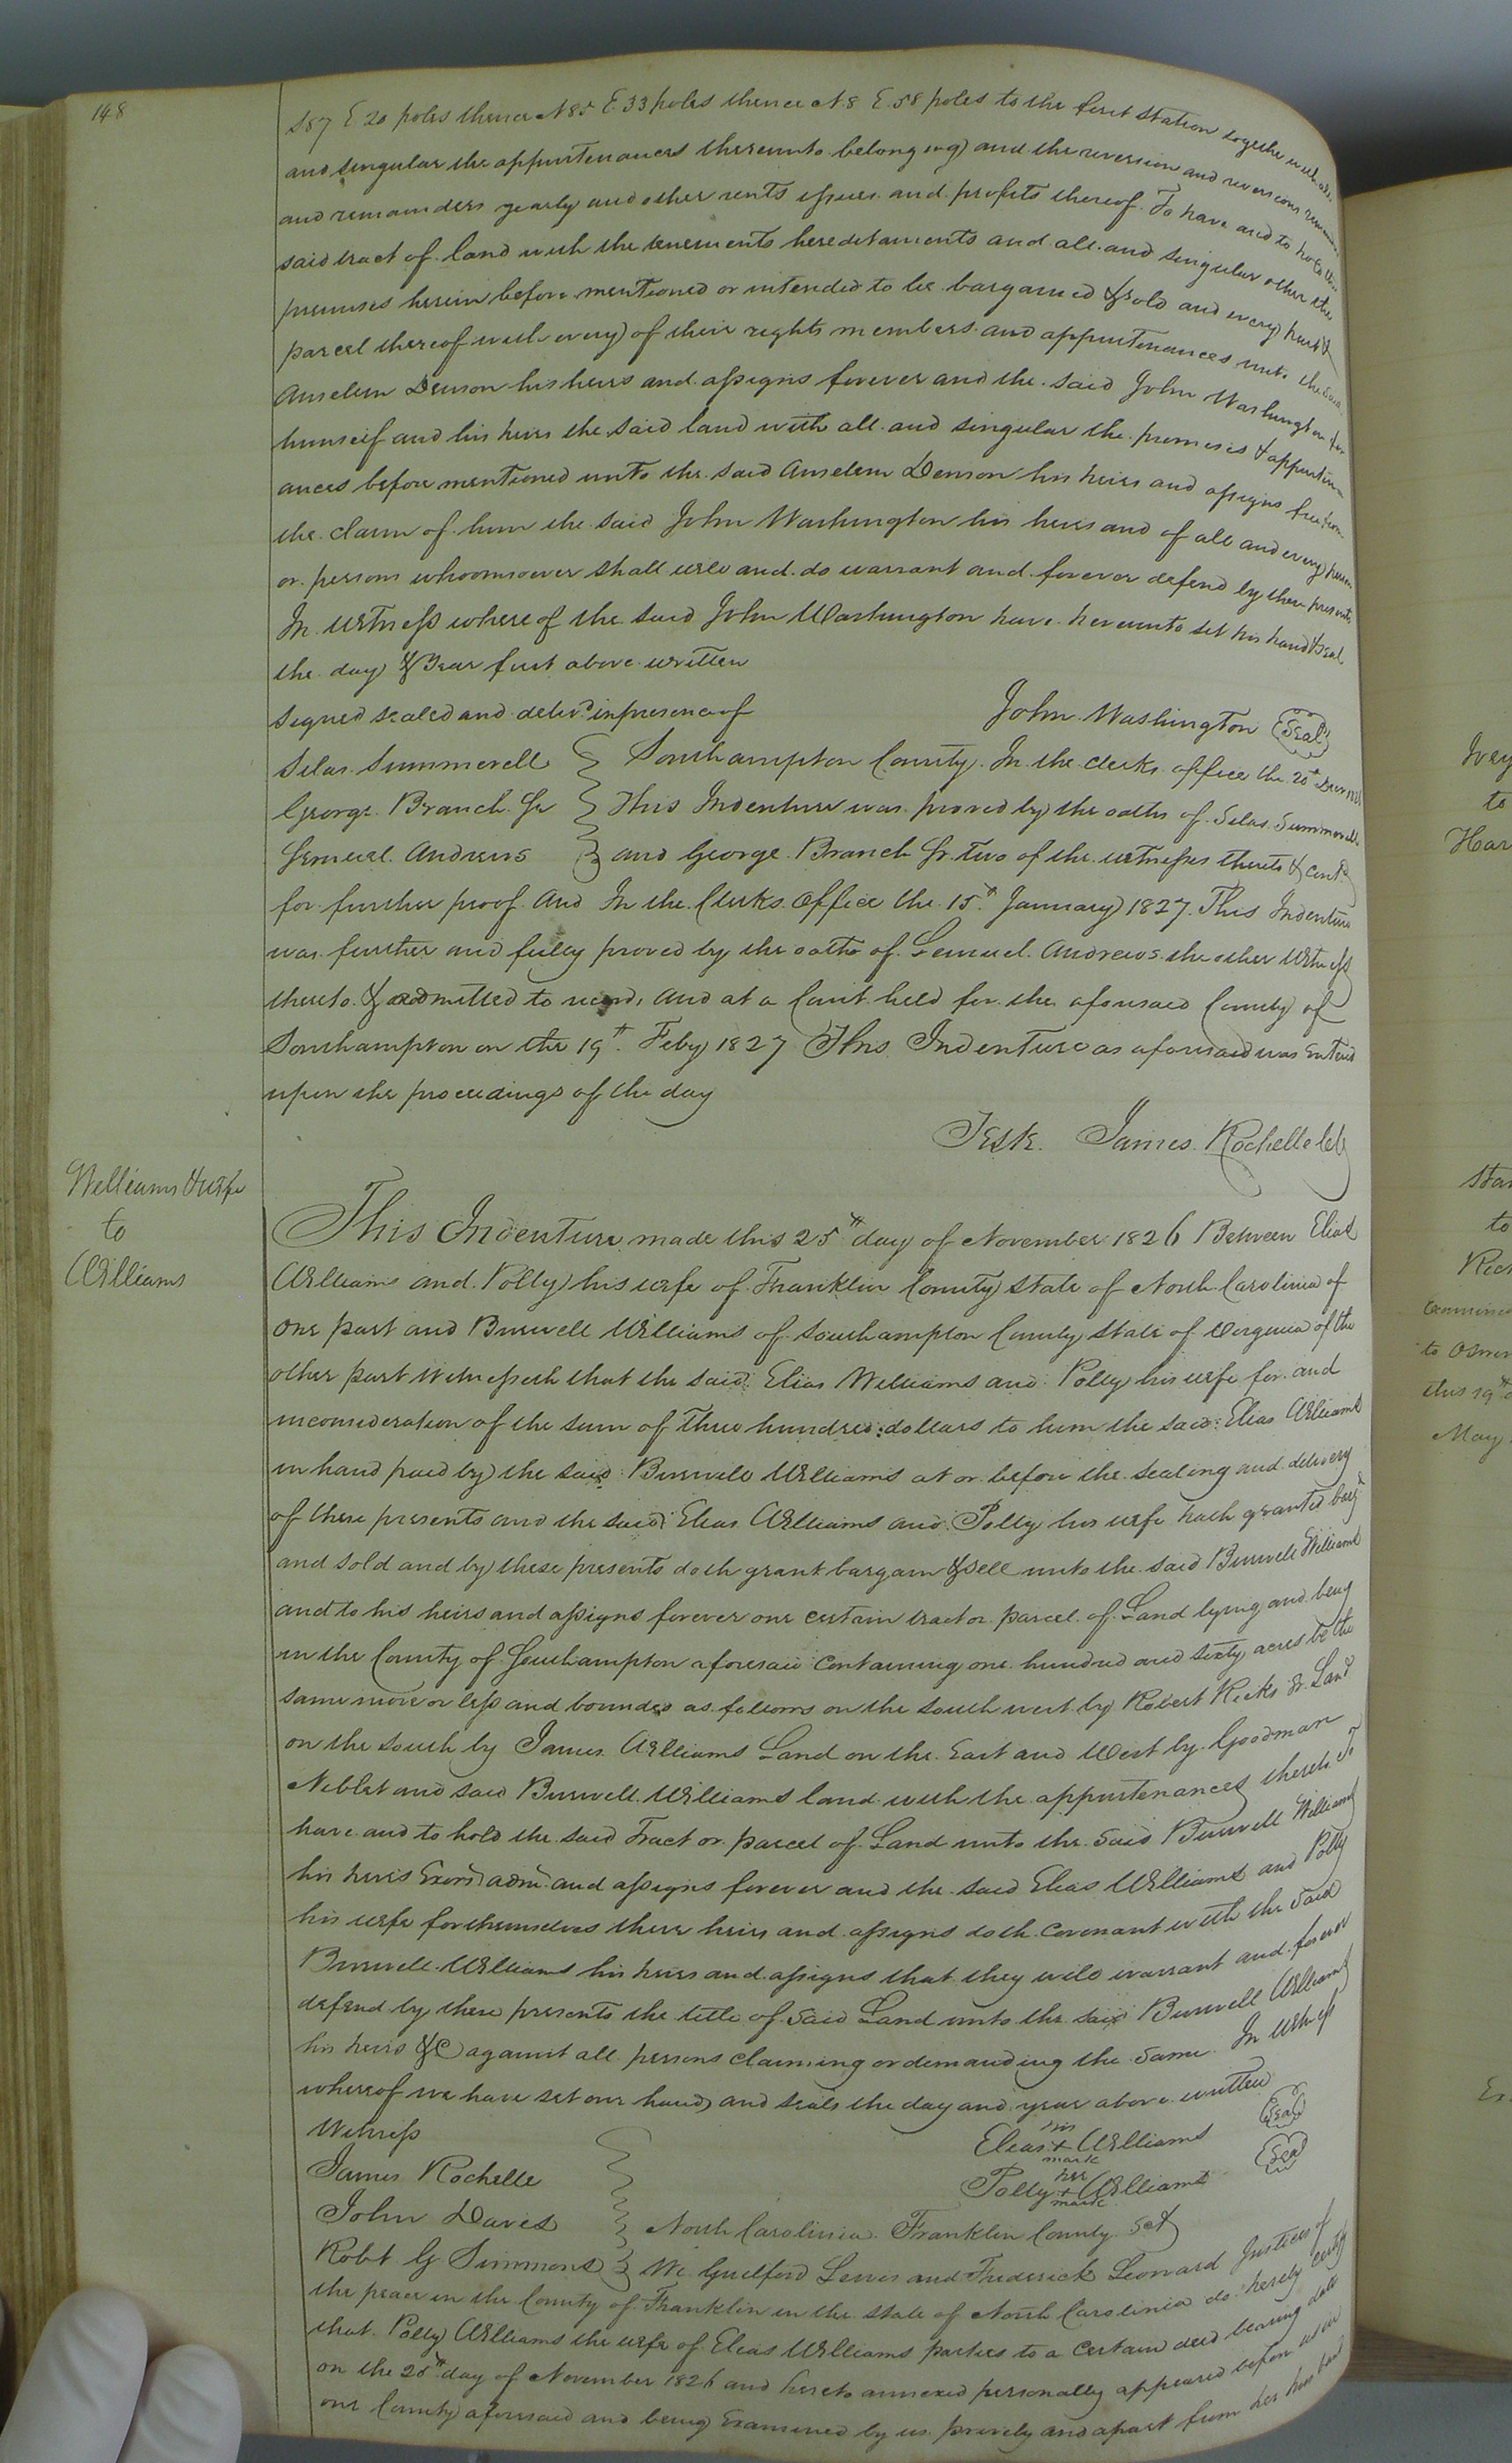 148
S87 E 20 poles thence N85 E 33 poles thence N8 E. 58 poles to the first station together with all
and singular the appurtenances thereunto belonging and the reversion and reversions
and remainders yearly and other rents issues and profits thereof. To have and to hold the
said tract of land with the tenements hereditaments and all and singular other the
premises herein before mentioned or intended to be bargained & sold and every part &
parcel thereof with every of their rights members and appurtenances unto the said
Anselem Denson his heirs and assigns forever and the said John Washington for
himself and his heirs the said land with all and singular the premises & appurten
ances before mentioned unto the said Anselem Denson his heirs and assigns free from
the claim of him the said John Washington his heirs and of all and every person
or persons whoomsoever shall will and do warrant and forever defend by these presents
In witness whereof the said John Washington have hereunto set his hand & seal
the day & Year first above written
Signed sealed and delivd in presence of
John Washington Seal
Silas Summerell Southampton County In the clerks office the 20th
George Branch Jr This Indenture was proved by the oaths of Silas Summerell
Lemuel Andrews and George Branch Jr two of the witnesses thereto & contd
for further proof And In the Clerks Office the 15th January 1827 This Indenture
was further and fully proved by the oath of Lemuel Andrews the other witness
thereto & admitted to record, And at a Court held for the aforesaid County of
Southampton on the 19th Feby 1827 This Indenture as aforesaid was entered
upon the proceedings of the day
Teste. James Rochelle Clk
Williams & wife
to
Williams
This Indenture made this 25th day of November 1826 Between Elias
Williams and Polly his wife of Franklin County State of North Carolinia of
one part and Burwell Williams of Southampton County State of Virginia of the
other part Witnesseth that the said Elias Williams and Polly his wife for and
inconsideration of the sum of Three hundred dollars to him the said Elias Williams
in hand paid by the said Burwell Williams at or before the sealing and delivery
of these presents and the said Elias Williams and Polly his wife hath granted bargd
and sold and by these presents doth grant bargain & sell unto the said Burwell Williams
and to his heirs and assigns forever one certain tract or parcel of Land lying and being
in the County of Southampton aforesaid containing one hundred and sixty acres be the
same more or less and bounded as follows on the south west by Robert Ricks Sr Land
on the South by James Williams Land on the East and West by Goodman
Neblet and said Burwell Williams land with the appurtenances thereto To
have and to hold the said Tract or parcel of Land unto the said Burwell Williams
his heirs Exors admr and assigns forever and the said Elias Williams and Polly
his wife for themselves there heirs and assigns doth covenant with the said
Burwell Williams his heirs and assigns that they will warrant and forever
defend by these presents the title of said Land unto the said Burwell Williams
his heirs &C against all persons claiming or demanding the same In witness
whereof we have set our hands and seals the day and year above written
Witness
his
Elias + Williams Seal
mark
James Rochelle
her
Polly + Williams Seal
mark
John Daves North Carolinia Franklin County Sct
Robt G Simmons We Guilford Lewis and Frederick Leonard Justices of
the peace in the County of Franklin in the state of North Carolinia do hereby certify
that Polly Williams the wife of Elias Williams parties to a certain deed bearing date
on the 25th day of November 1826 and hereto annexed personally appeared before us in
our County aforesaid and being Examined by us privily and apart from her husband
Ivey
to
Har
to
May